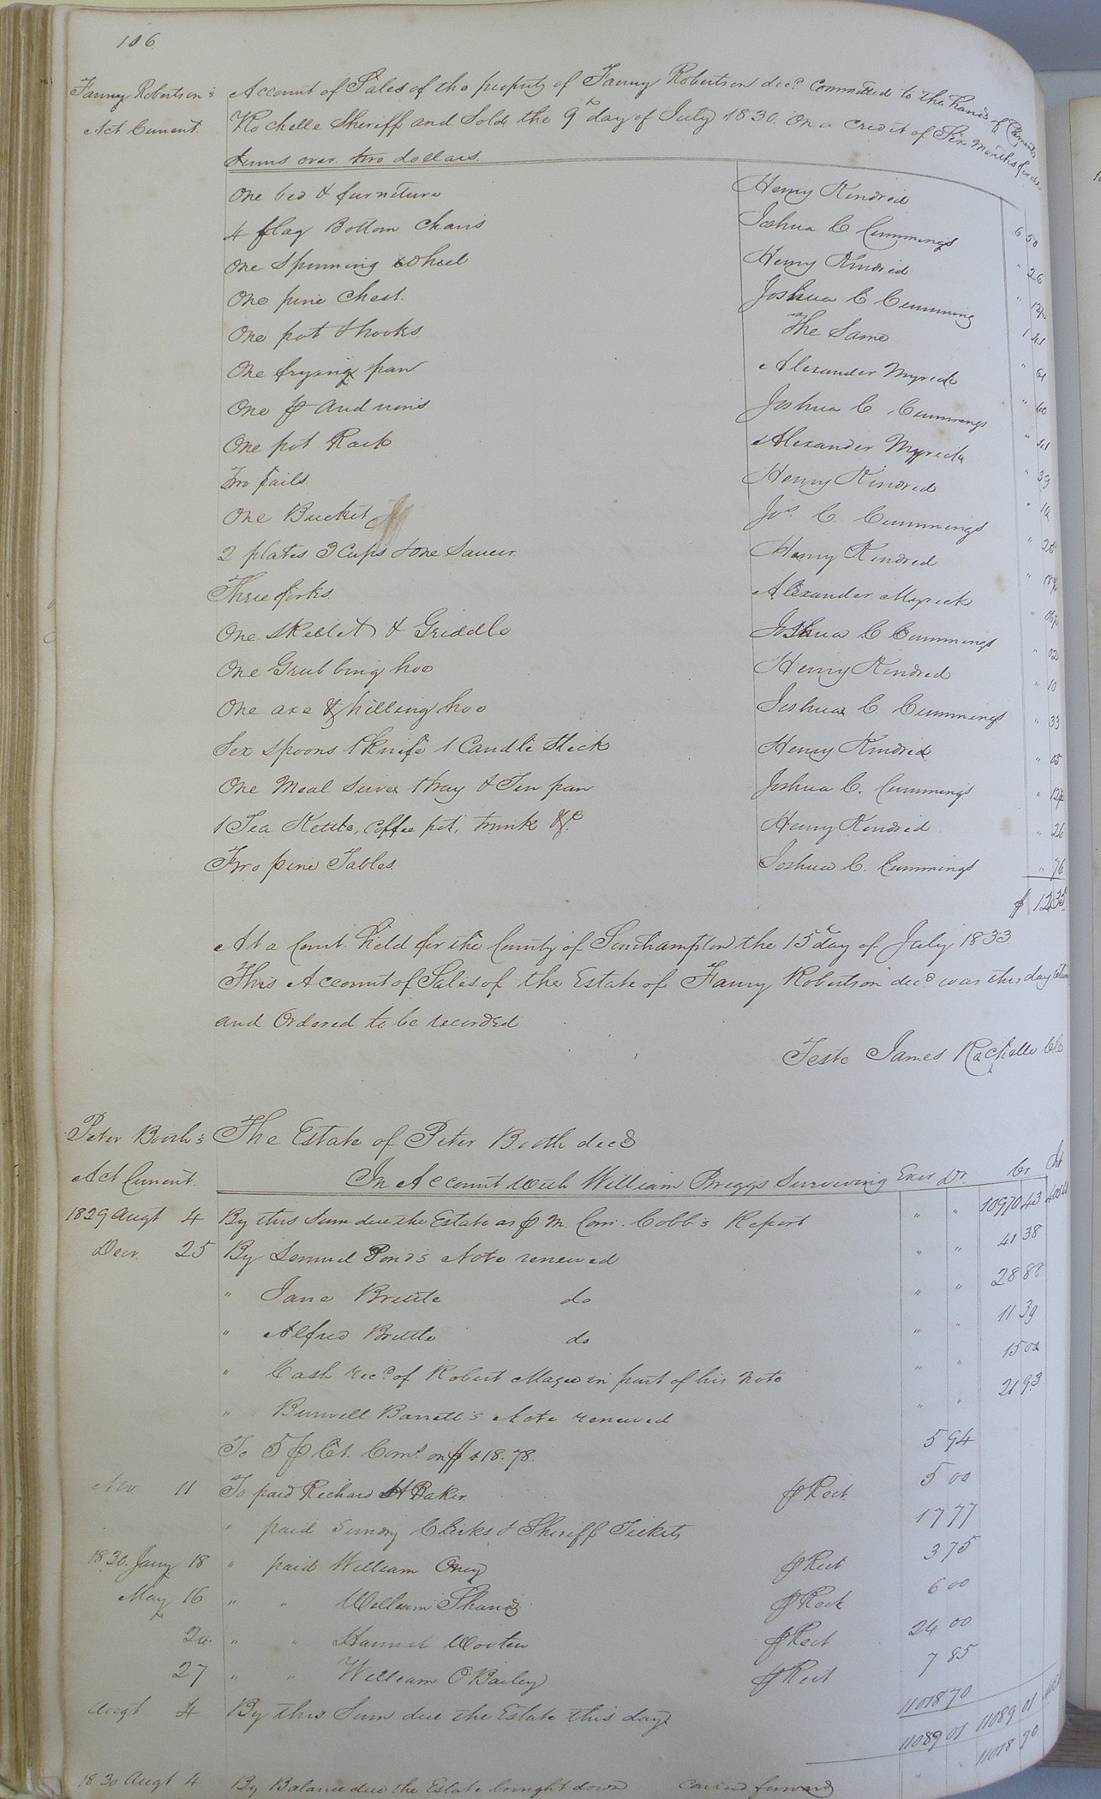 106
Fanny Robertson's Account of Sales of the property of Fanny Robertson decd. Committed to the hands of Clements
Act Current. Rochelle Sheriff and Sold the 9th day of July 1830. On a credit of Six Months for all
sums over two dollars.
One bed & furniture Henry Kindred 6 50
4 flag Bottom Chairs Joshua C Cummings " 26
One Spinning Wheel Henry Kindred " 12½
One pine Chest. Joshua C Cumming 1 41
One pot & hooks. The Same " 51
One frying pan Alexander Myrick " 40
One p Andirons Joshua C Cummings " 41
One pot Rack Alexander Myrick " 39
Two pails. Henry Kindred
One Bucket Jos. C Cummings
2 plates 3 Cups & One Saucer. Henry Kindred
Three forks. Alexander Myrick
One Skillet & Griddle Joshua C Cummings
One Grubbing hoe Henry Kindred " 10
One axe & hilling hoe Joshua C Cummings " 33
Six Spoons 1 Knife 1 Candle Stick Henry Kindred " 05
One Meal Sieve tray & Tin pan Joshua C. Cummings " 12½
1 Tea Kettle, Coffee pot, trunk &c. Henry Kindred " 26
Two pine Tables. Joshua C. Cummings " 76
$ 12 35
At a Court Held for the County of Southampton the 15th day of July 1833.
This Account of Sales of the Estate of Fanny Robertson decd was this day
and Ordered to be recorded
Teste James Rochelle Clk
Peter Booth's The Estate of Peter Booth decd
Act Current. In Account with William Briggs Surviving Exor Dr. Cr.
1829 Augt 4 By this Sum due the Estate as p M. Com. Cobb's Report " " 10970 43
Decr. 25 By Lemuel Pond's Note renewed " " 41 38
" Jane Brittle do " " 28 88
" Alfred Brittle do " " 11 39
" Cash recd. of Robert Magee in part of his Note " " 15 02
" Burwell Barrett's Note renewed " " 21 93
To 5 p Ct. Coms on $118.78. 5 94
Nov. 11 To paid Richard H Baker. p Rect. 5 00
" paid Sundry Clerks & Sheriff Tickets 17 77
1830. Jany 18 " paid William Oney p Rect 3 75
May 16 " " William Shands p Rect 6 00
" " Wooten p Rect 24 00
27 " " William O Bailey p Rect 7 85
Augt 4 By this Sum due the Estate this day 11018 70
11089 01 11089 01
1830 Augt 4 By Balance due the Estate brought down carried forward 11018 70